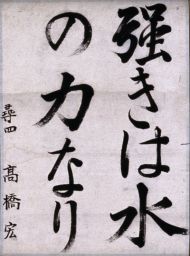 強きは水
の力なり
尋四 高橋宏